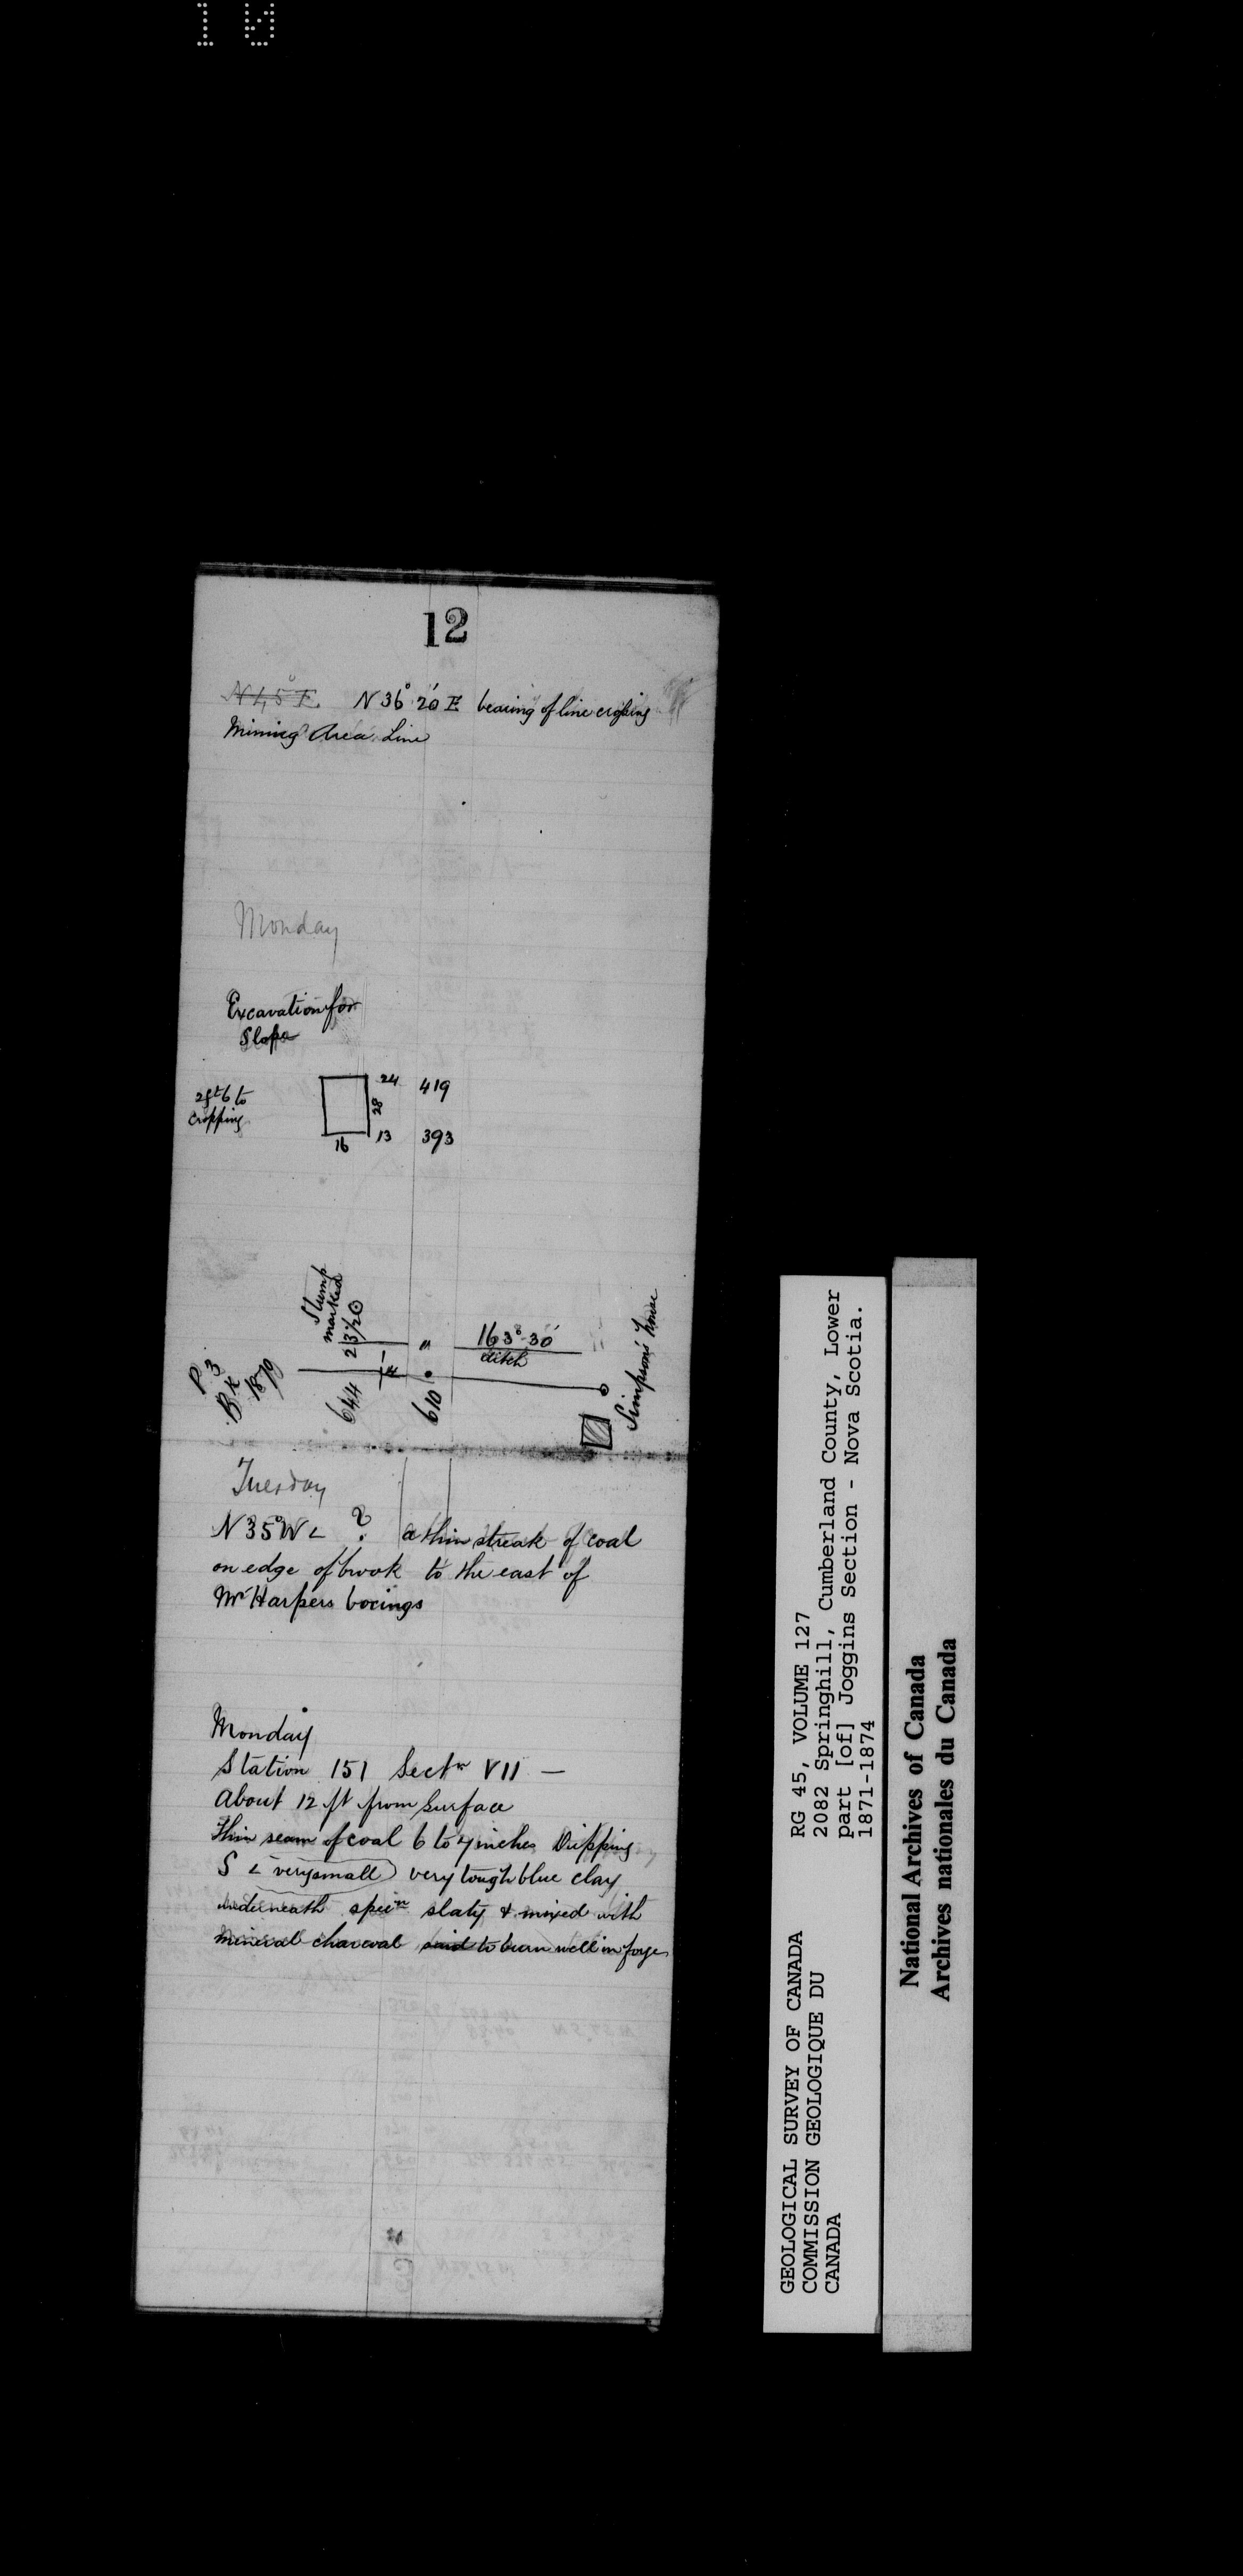 10
12
N45°E. N36°20'E bearing of line crossing
Mining Area Line
Monday
Excavation for
Slope
24 419
28
2ft 6 to
cropping
13 393
16
Stump
marked
23 1/20
" 163°30'
ditch
P 3
Bk
1870
644
14
610
Simpsons house
Tuesday
N35°W ∠ ? a thin streak of coal
on edge of brook to the east of
Mr Harpers borings
Monday
Station 151 Sectn VII —
About 12 ft from Surface
Thin seam of coal 6 to 7 inches Dipping
S ∠ (very small) very tough blue clay
underneath specn slaty & mixed with
mineral charcoal said to burn well in forge
GEOLOGICAL SURVEY OF CANADA
COMMISSION GEOLOGIQUE DU
CANADA
RG 45, VOLUME 127
2082 Springhill, Cumberland County, Lower
part [of] Joggins Section - Nova Scotia.
1871-1874
National Archives of Canada
Archives nationales du Canada